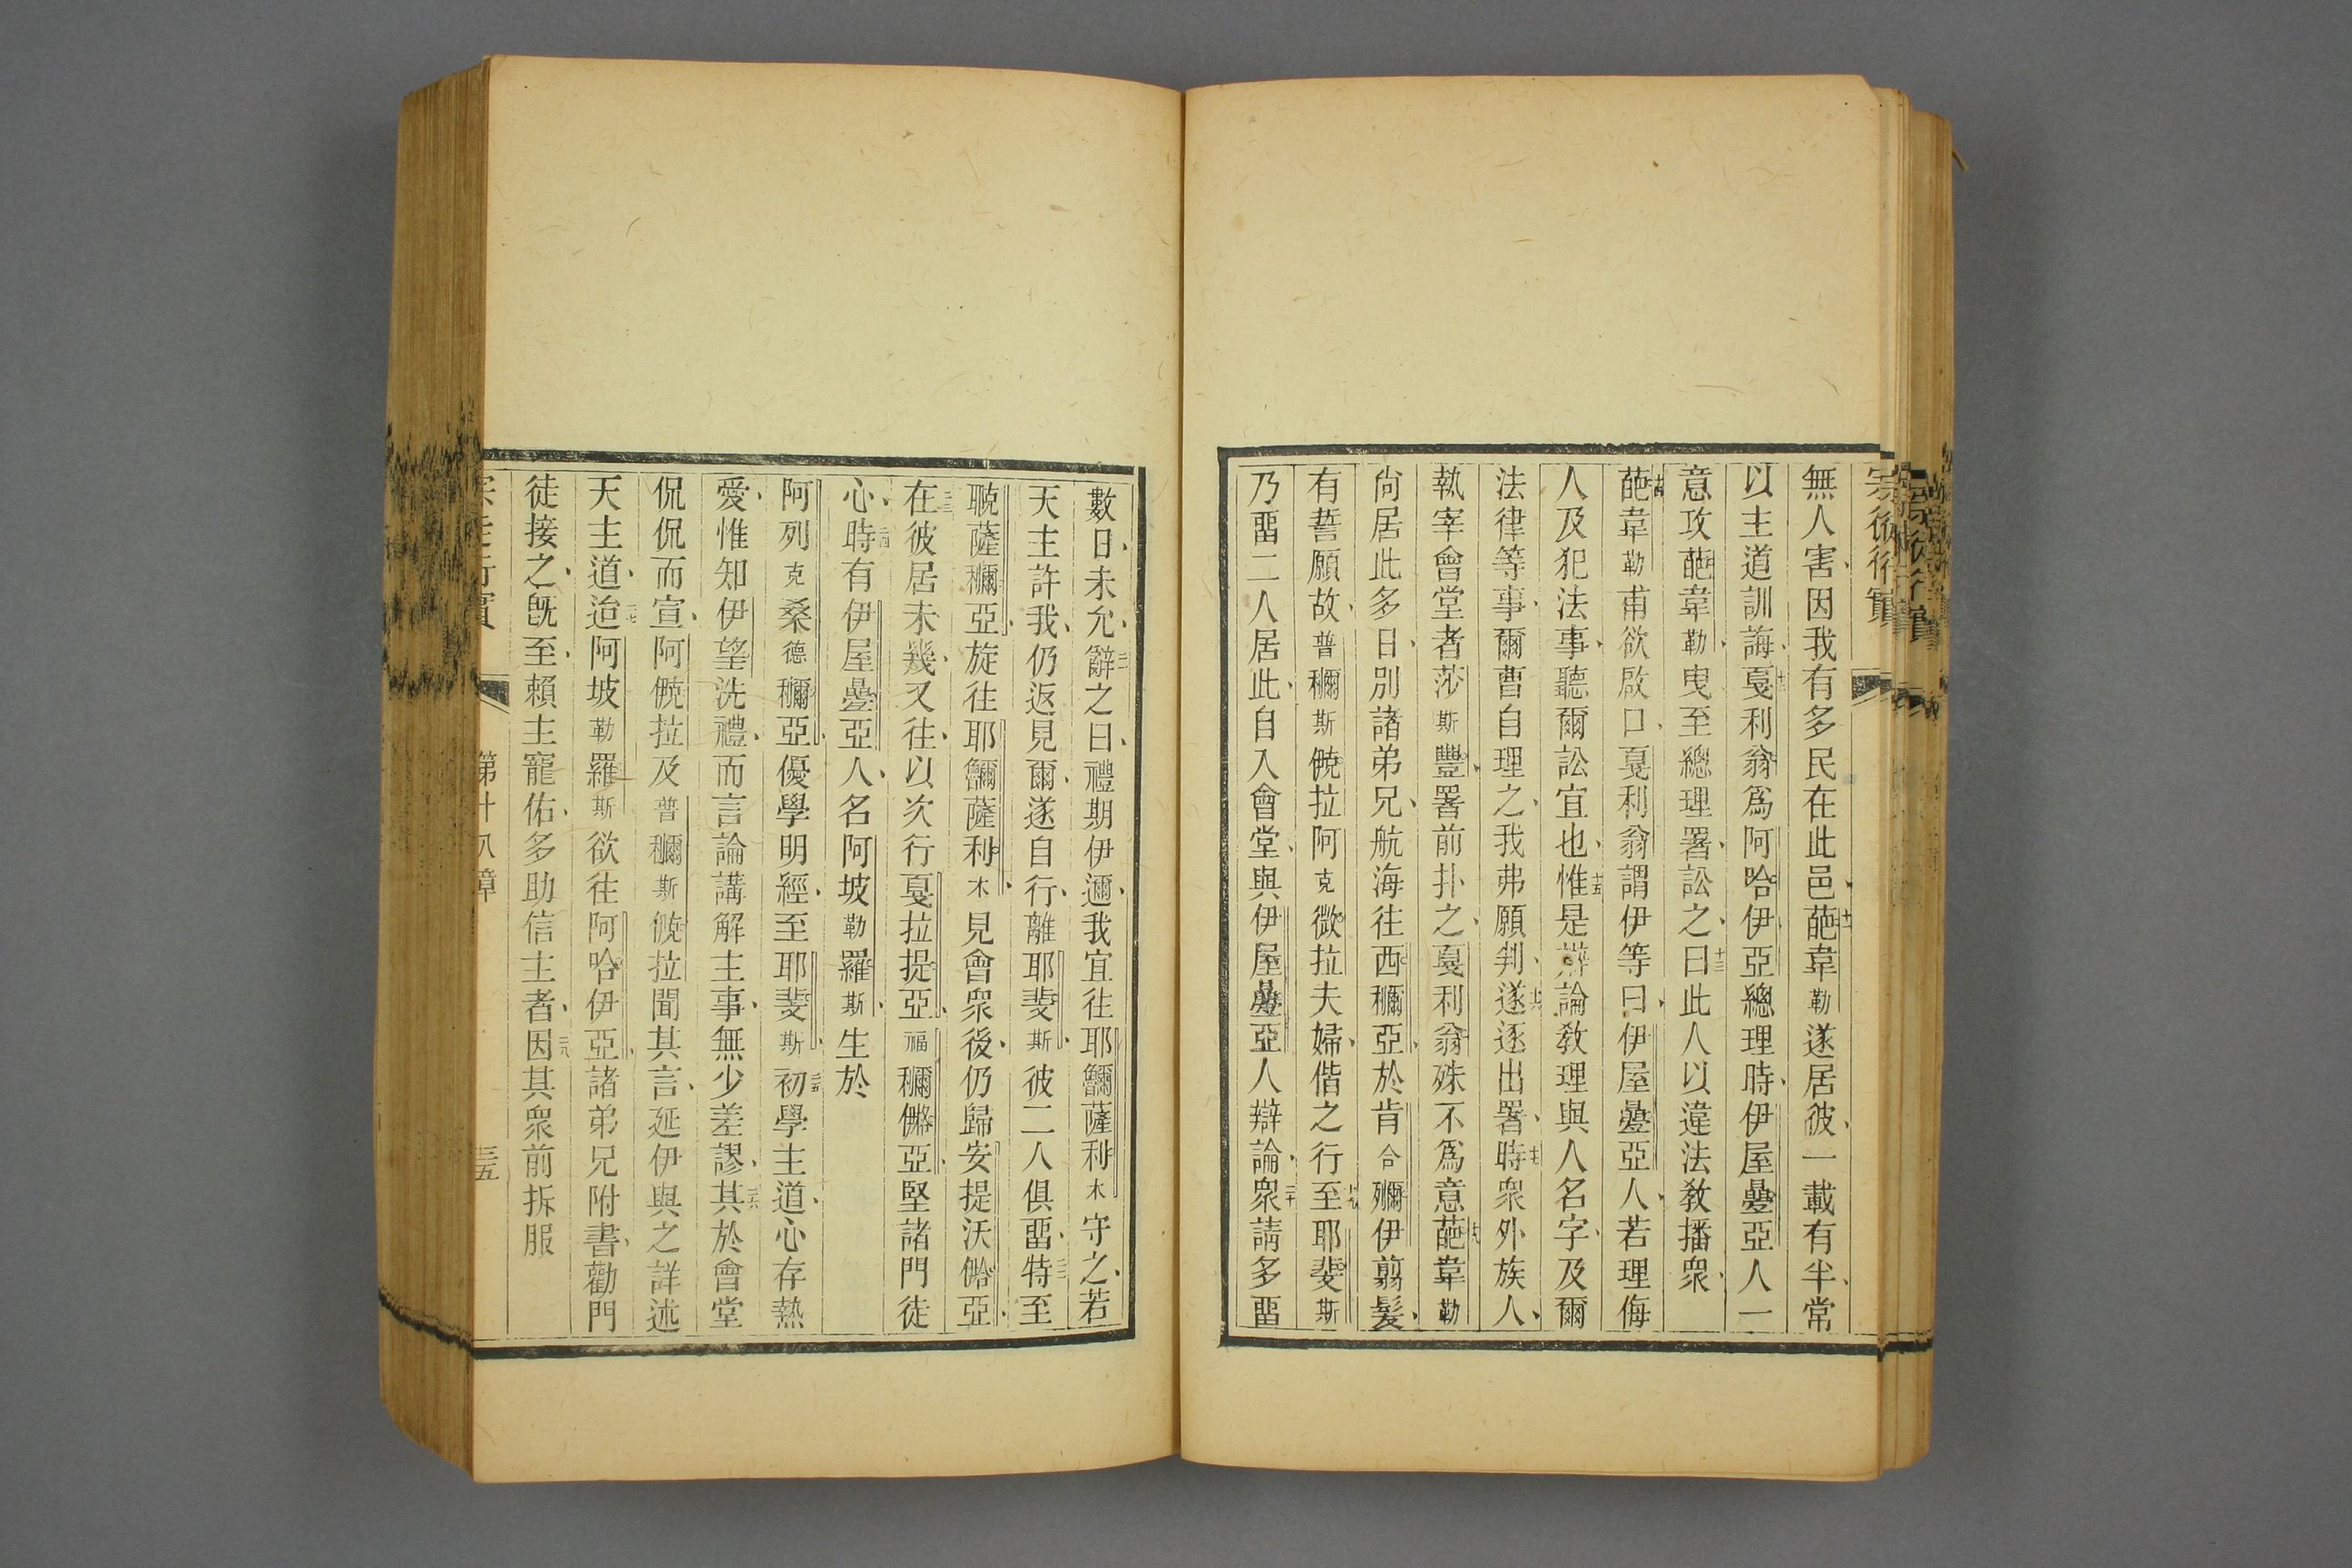 宗徒行實
無人害、因我有多民在此邑、十一葩韋勒遂居彼、一載有半、常
以主道訓誨、十二戛利翁爲阿哈伊亞總理時、伊屋疊亞人一
意攻葩韋勒、曳至總理署、訟之、十三曰此人以違法教播衆、
十四葩韋勒甫欲啟口、戛利翁謂伊等曰、伊屋疊亞人、若理侮
人及犯法事、聽爾訟宜也、十五惟是辯論教理與人名字、及爾
法律等事、爾曹自理之、我弗願判、十六遂逐出署、十七時衆外族人、
執宰會堂者莎斯豐、署前扑之、戛利翁殊不爲意、十八葩韋勒
尚居此多日、別諸弟兄、航海往西穪亞、於肯合殢伊翦髮、
有誓願故、普穪斯僥拉阿克微拉夫婦、偕之行、十九至耶斐斯
乃畱二人居此、自入會堂、與伊屋疊亞人辯論、二十衆請多畱
數日、未允、二一辭之曰、禮期伊邇、我宜往耶龥薩利木守之、若
天主許我、仍返見爾、遂自行、離耶斐斯、彼二人俱畱、二二特至
聭薩穪亞、旋往耶龥薩利木、見會衆後、仍歸安提沃佮亞、
二三在彼居未幾、又往、以次行戛拉提亞、福穪僯亞、堅諸門徒
心、二四時有伊屋疊亞人、名阿坡勒羅斯、生於
阿列克桑德穪亞、優學明經、至耶斐斯、二五初學主道、心存熱
愛、惟知伊望洗禮、而言論講解主事、無少差謬、二六其於會堂
侃侃而宣、阿僥拉及普穪斯僥拉聞其言、延伊與之詳述
天主道、二七迨阿坡勒羅斯欲往阿哈伊亞、諸弟兄附書、勸門
徒接之、旣至、賴主寵佑、多助信主者、二八因其衆前拆服
宗徒行實 第十八章 三五